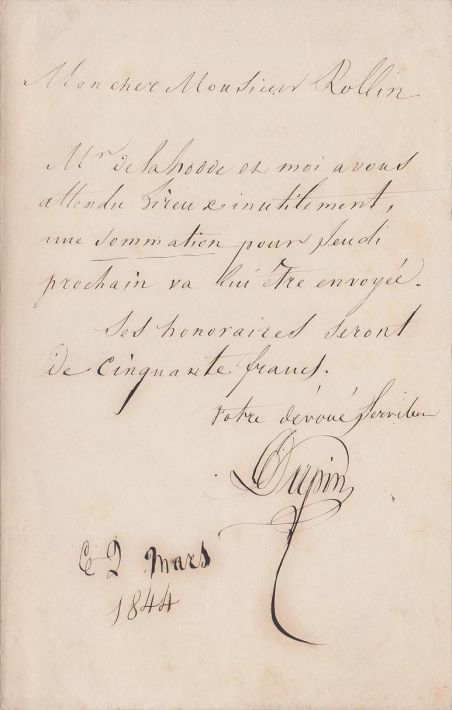 Mon cher Monsieur Rollin
Mr de la hodde et moi avons
attendu Lireux inutilement,
une sommation pour jeudi
prochain va lui être envoyée.
Ses honoraires seront
de cinquante francs.
Votre dévoué Serviteur
Dupin
Le 2 mars
1844